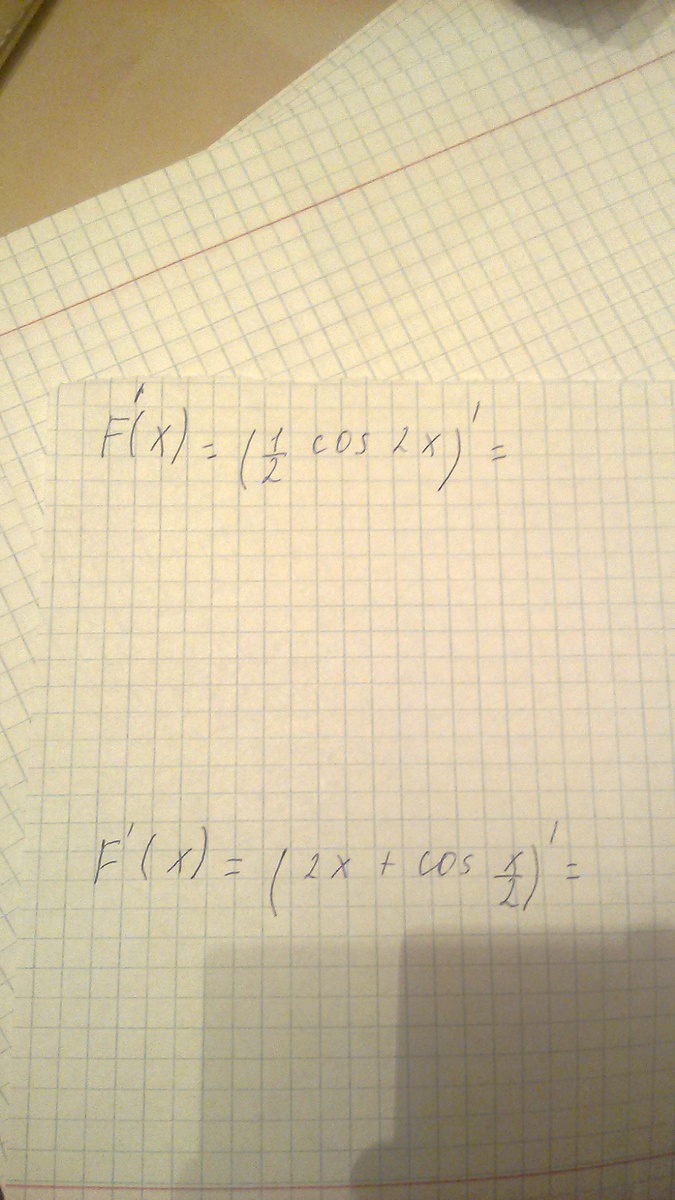 F'(x) = (1/2 cos 2x)' =
F'(x) = (2x + cos x/2)' =